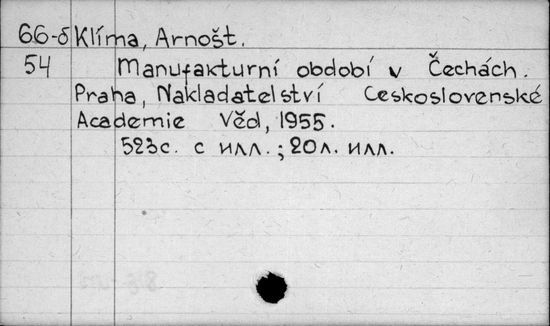 66-5 Klíma, Arnošt.
54 Manufakturní období v Čechách.
Praha, Nakladatelství Československé
Academie Věd, 1955.
523с. с илл.; 20л. илл.